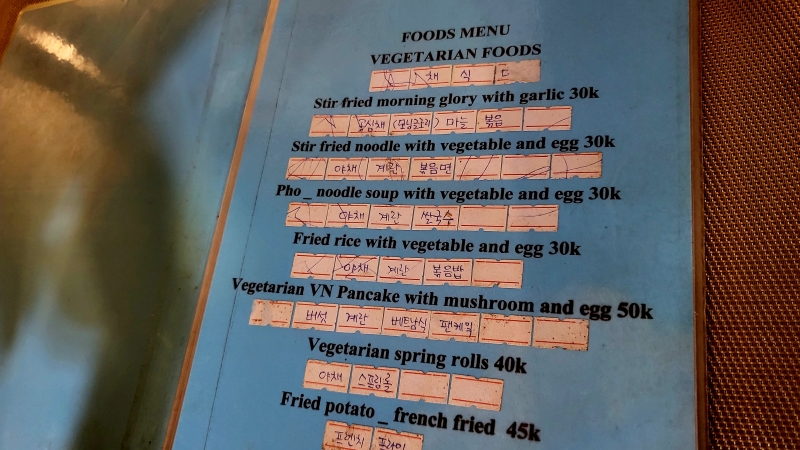 FOODS MENU
VEGETARIAN FOODS
채 식
Stir fried morning glory with garlic 30k
공심채 (모닝글로리) 마늘 볶음
Stir fried noodle with vegetable and egg 30k
야채 계란 볶음면
Pho _ noodle soup with vegetable and egg 30k
야채 계란 쌀국수
Fried rice with vegetable and egg 30k
야채 계란 볶음밥
Vegetarian VN Pancake with mushroom and egg 50k
버섯 계란 베트남식 팬케익
Vegetarian spring rolls 40k
야채 스프링롤
Fried potato _ french fried 45k
프렌치 프라이